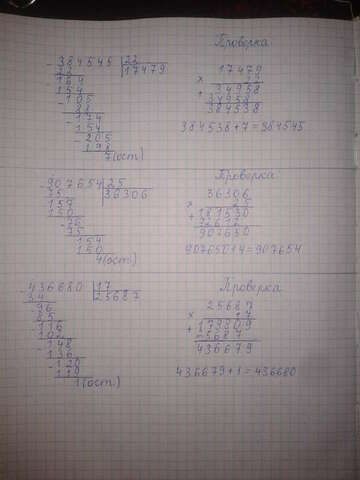 Проверка
- 384545 | 22
22 | 17479
164
154
- 105
88
- 174
154
- 205
198
7(ост.)
17479
x 22
+ 34958
34958
384538
384538+7=384545
Проверка
907654 | 25
75 | 36306
157
150
- 76
75
154
150
4(ост.)
36306
x 25
+ 181530
72612
907650
907650+4=907654
Проверка
436680 | 17
34 | 25687
96
85
- 116
102
- 148
136
- 120
119
1(ост.)
25687
x 17
+ 179809
25687
436679
436679+1=436680